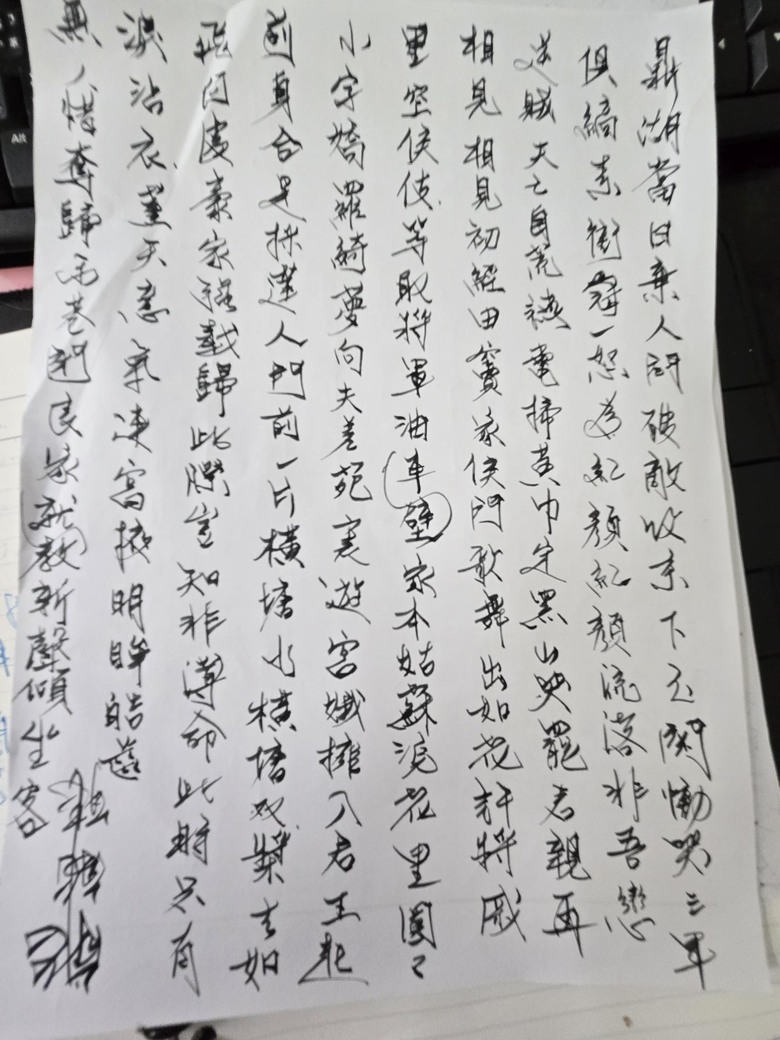 鼎湖當日棄人間破敵收京下玉關慟哭三軍
俱縞素衝冠一怒為紅顏紅顏流落非吾戀
逆賊天亡自荒讌電掃黃巾定黑山哭罷君親再
相見相見初經田竇家侯門歌舞出如花許將戚
里空侯伎等取將軍油車壁家本姑蘇浣花里圓々
小字嬌羅綺夢向夫差苑裏遊宮娥擁入君王起
前身合是採蓮人門前一片橫塘水橫塘双槳去如
飛何處豪家強載歸此際豈知非薄命此時只有
淚沾衣薰天意氣連宮掖明眸皓齒
無人惜奪歸永巷閉良家就教新聲傾坐客